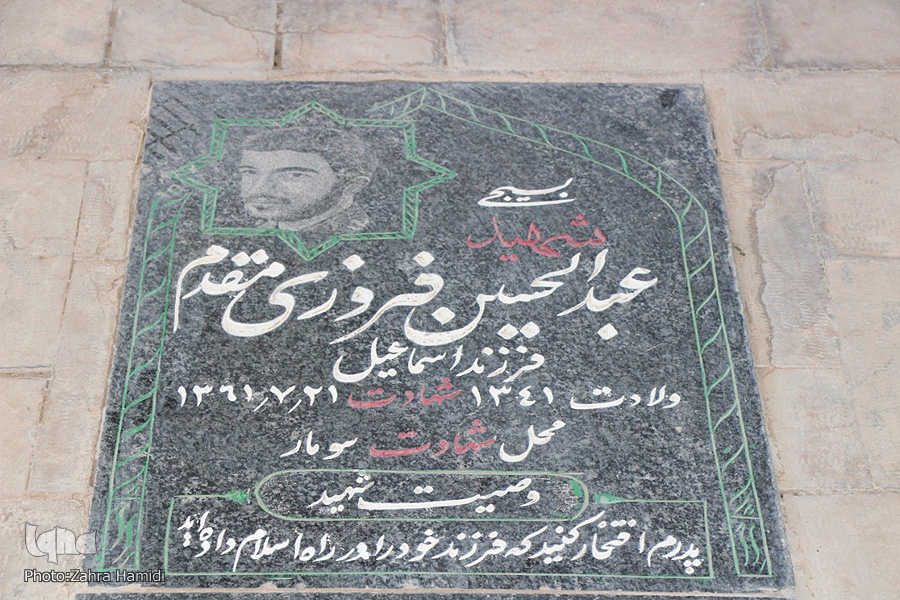 بسیجی
شهید
عبدالحسین فروزی متقدم
فرزند اسماعیل
ولادت ۱۳۴۱ شهادت ۱۳۶۱٫۷٫۲۱
محل شهادت سومار
وصیت شهید
پدرم افتخار کنید که فرزند خود را در راه اسلام داده‌اید
iqna
Photo:Zahra Hamidi